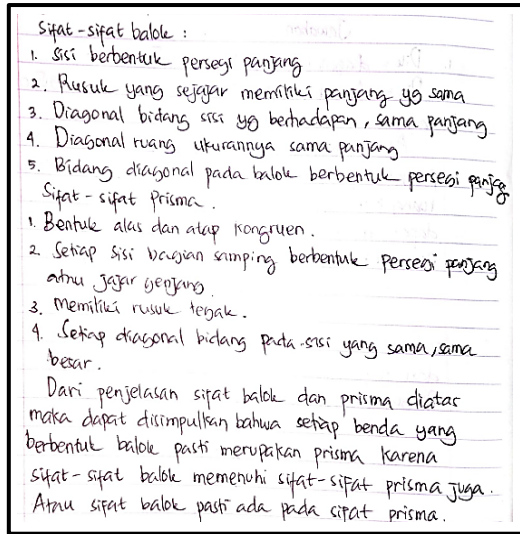 Sifat-sifat balok :
1. Sisi berbentuk persegi panjang
2. Rusuk yang sejajar memiliki panjang yg sama
3. Diagonal bidang sisi yg berhadapan, sama panjang
4. Diagonal ruang ukurannya sama panjang
5. Bidang diagonal pada balok berbentuk persegi panjang
Sifat-sifat Prisma.
1. Bentuk alas dan atap kongruen.
2. Setiap sisi bagian samping berbentuk persegi panjang
atau jajar genjang.
3. Memiliki rusuk tegak.
4. Setiap diagonal bidang pada sisi yang sama, sama
besar.
Dari penjelasan sifat balok dan prisma diatas
maka dapat disimpulkan bahwa setiap benda yang
berbentuk balok pasti merupakan prisma karena
sifat-sifat balok memenuhi sifat-sifat prisma juga.
Atau sifat balok pasti ada pada sifat prisma.